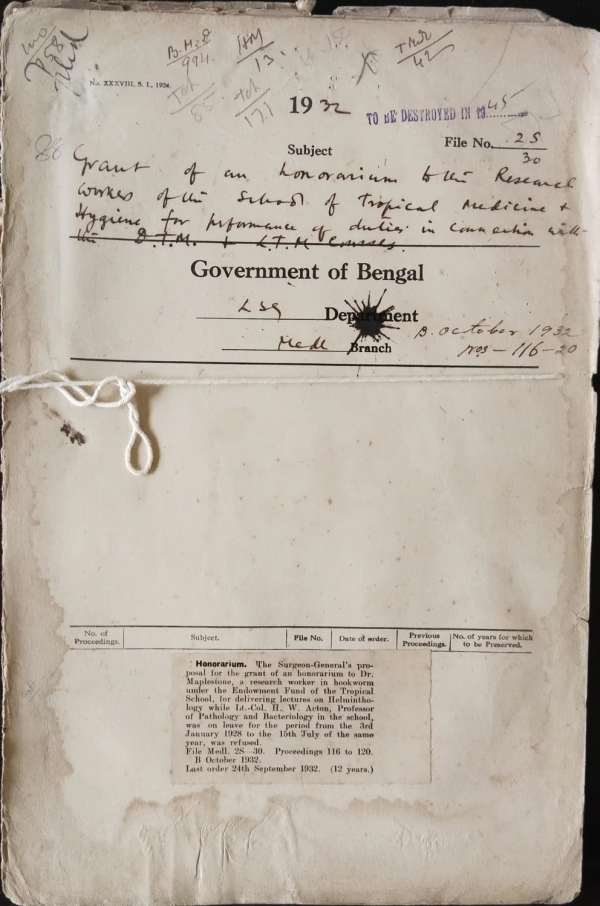 B.M.S
994
HM
13
TMR
42
No. XXXVIII, S. I., 1924.
Tch
85
Tch
171
1932
TO BE DESTROYED IN 1945
Subject
File No. 2S
30
Grant of an honorarium to the Research
workers of the School of Tropical Medicine &
Hygiene for performance of duties in connection with
the D.T.M. & L.T.M Courses.
Government of Bengal
LSG Department
Medl Branch
B. October 1932
Nos - 116-20
No. of Proceedings.
Subject.
File No.
Date of order.
Previous Proceedings.
No. of years for which to be Preserved.
Honorarium. The Surgeon-General's pro-
posal for the grant of an honorarium to Dr.
Maplestone, a research worker in hookworm
under the Endowment Fund of the Tropical
School, for delivering lectures on Helmintho-
logy while Lt.-Col. H. W. Acton, Professor
of Pathology and Bacteriology in the school,
was on leave for the period from the 3rd
January 1928 to the 15th July of the same
year, was refused.
File Medl. 2S—30. Proceedings 116 to 120.
B October 1932.
Last order 24th September 1932. (12 years.)